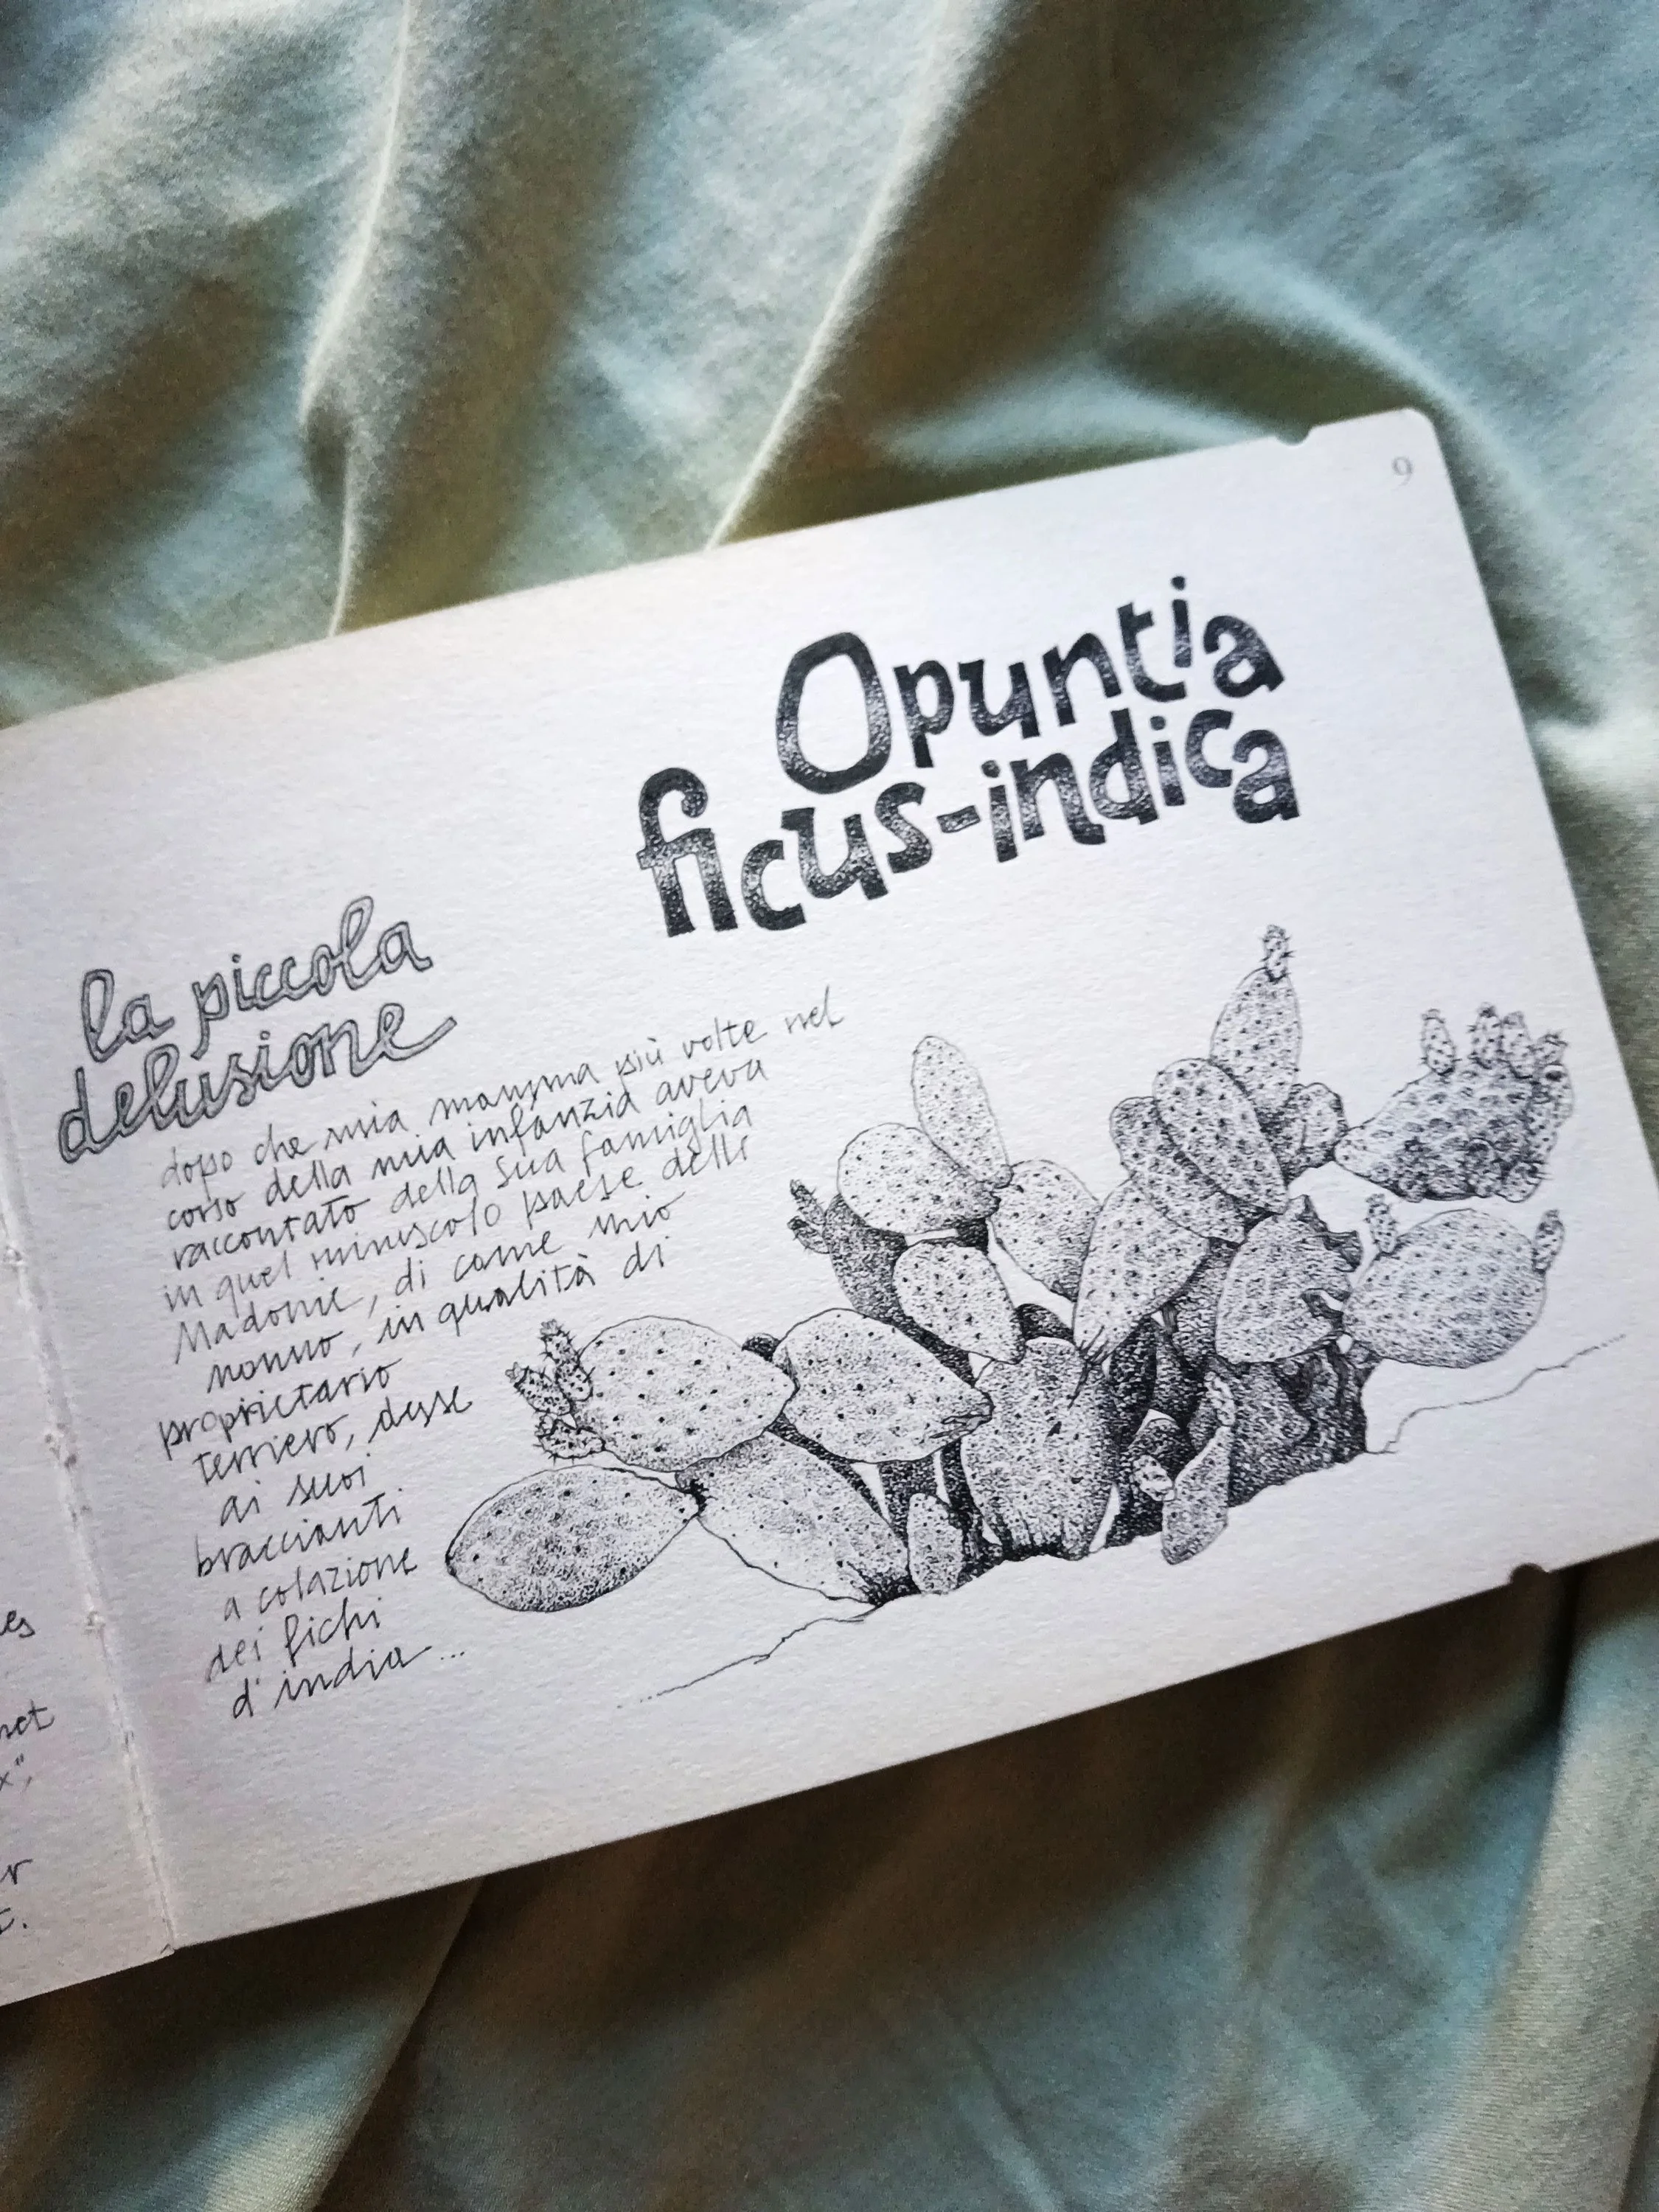 9
Opuntia
ficus-indica
la piccola
delusione
dopo che mia mamma più volte nel
corso della mia infanzia aveva
raccontato della sua famiglia
in quel minuscolo paese delle
Madonie, di come mio
nonno, in qualità di
proprietario
terriero, desse
ai suoi
braccianti
a colazione
dei fichi
d'india...